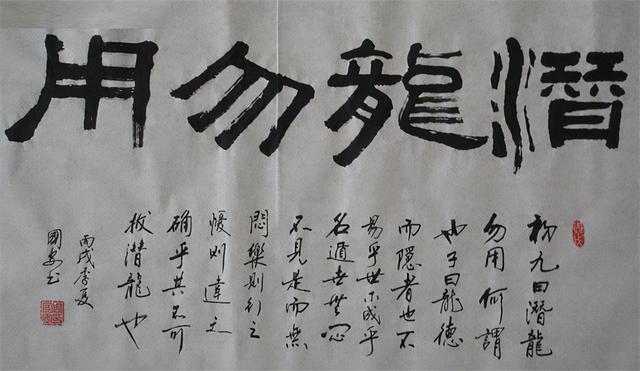 潛龍勿用
初九曰潛龍
勿用何謂
也子曰龍德
而隱者也不
易乎世不成乎
名遁世無悶
不見是而無
悶樂則行之
憂則違之
確乎其不可
拔潛龍也
丙戌季夏
國安书